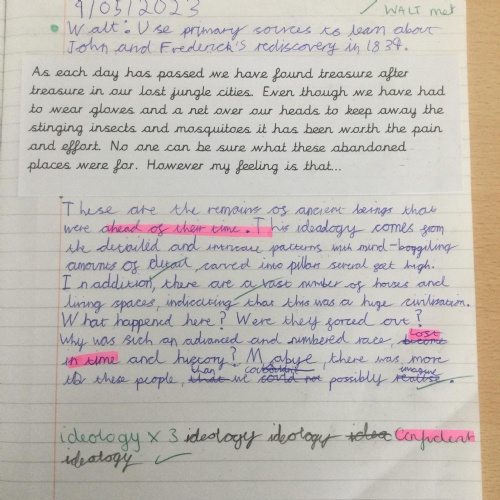 9/05/2023
WALT met
Walt: Use primary sources to learn about
John and Frederick's rediscovery in 1839.
As each day has passed we have found treasure after
treasure in our lost jungle cities. Even though we have had
to wear gloves and a net over our heads to keep away the
stinging insects and mosquitoes it has been worth the pain
and effort. No one can be sure what these abandoned
places were for. However my feeling is that...
These are the remains of ancient beings that
were ahead of their time. This ideology comes from
the detailed and intricate patterns with mind-boggiling
amounts of detail, carved into pillars several feet high.
In addition, there are a vast number of houses and
living spaces, indicating that this was a huge civilisation.
What happened here? Were they forced out?
Why was such an advanced and numbered race, become lost
in time and history? Mabye, there was more
to these people, that than we could not couldn't possibly realise imagine.
ideology x 3 ideology ideology idea Confident
ideology